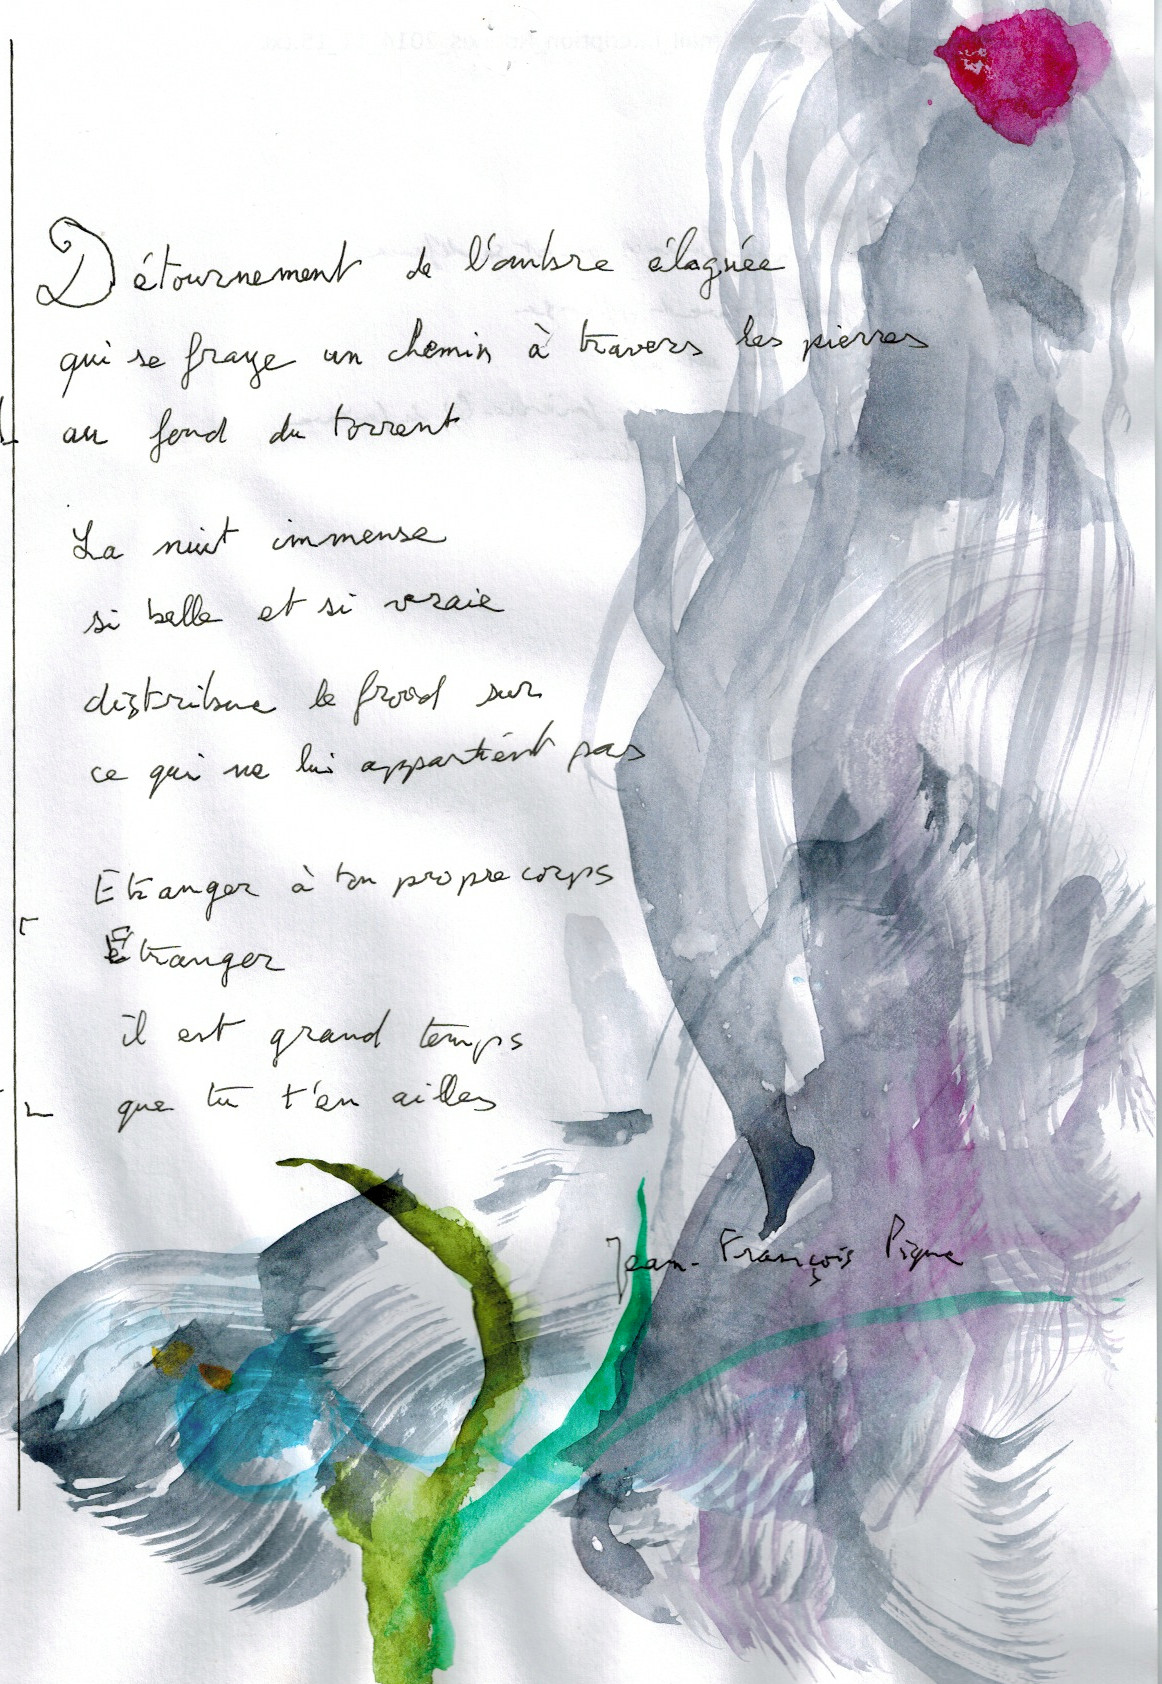 Détournement de l'ombre élaguée
qui se fraye un chemin à travers les pierres
au fond du torrent
La nuit immense
si belle et si vraie
distribue le froid sur
ce qui ne lui appartient pas
Etranger à ton propre corps
Étranger
il est grand temps
que tu t'en ailles
Jean-François Pigne